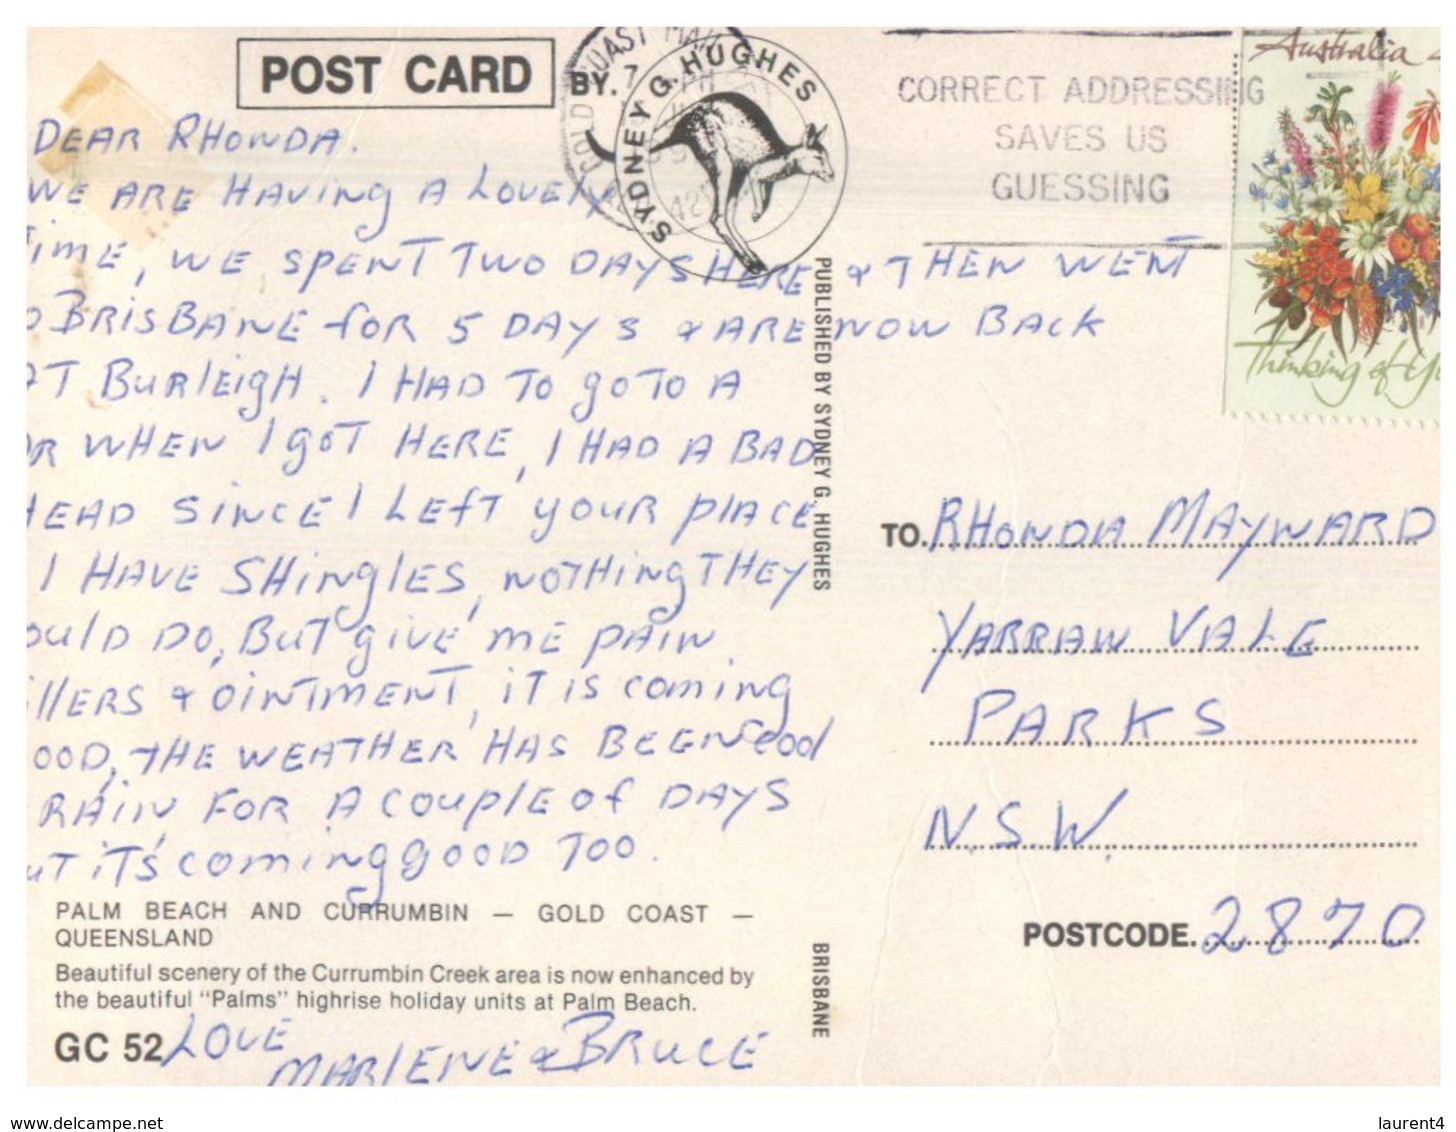 POST CARD
BY.
SYDNEY G. HUGHES
GOLD COAST MAIL
7
CORRECT ADDRESSING
SAVES US
GUESSING
Australia
Thinking of
DEAR RHONDA.
WE ARE HAVING A LOVELY
TIME, WE SPENT TWO DAYS HERE & THEN WENT
O BRISBANE FOR 5 DAYS & ARE NOW BACK
AT BURLEIGH. I HAD TO GO TO A
DR WHEN I GOT HERE, I HAD A BAD
HEAD SINCE I LEFT YOUR PLACE
I HAVE SHINGLES, NOTHING THEY
OULD DO, BUT GIVE ME PAIN
ILLERS & OINTMENT, IT IS COMING
OOD, THE WEATHER HAS BEEN GOOD
RAIN FOR A COUPLE OF DAYS
UT IT'S COMING GOOD TOO.
PALM BEACH AND CURRUMBIN — GOLD COAST —
QUEENSLAND
Beautiful scenery of the Currumbin Creek area is now enhanced by
the beautiful "Palms" highrise holiday units at Palm Beach.
GC 52
LOVE
MARLENE & BRUCE
PUBLISHED BY SYDNEY G. HUGHES
BRISBANE
TO. RHONDA MAYWARD
YARRAW VALE
PARKS
N.S.W.
POSTCODE. 2870
www.delcampe.net
laurent4